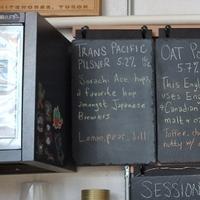 WHITEHORSE, YUKON
TRANS PACIFIC
PILSNER 5.2%
Sorachi Ace hops,
a favorite hop
amongst Japanese
Brewers
Lemon, pear, dill
OAT
5.7%
This Engl
uses Eng
& Canadian
malt &
Toffee, ch
nutty w/
SESSION